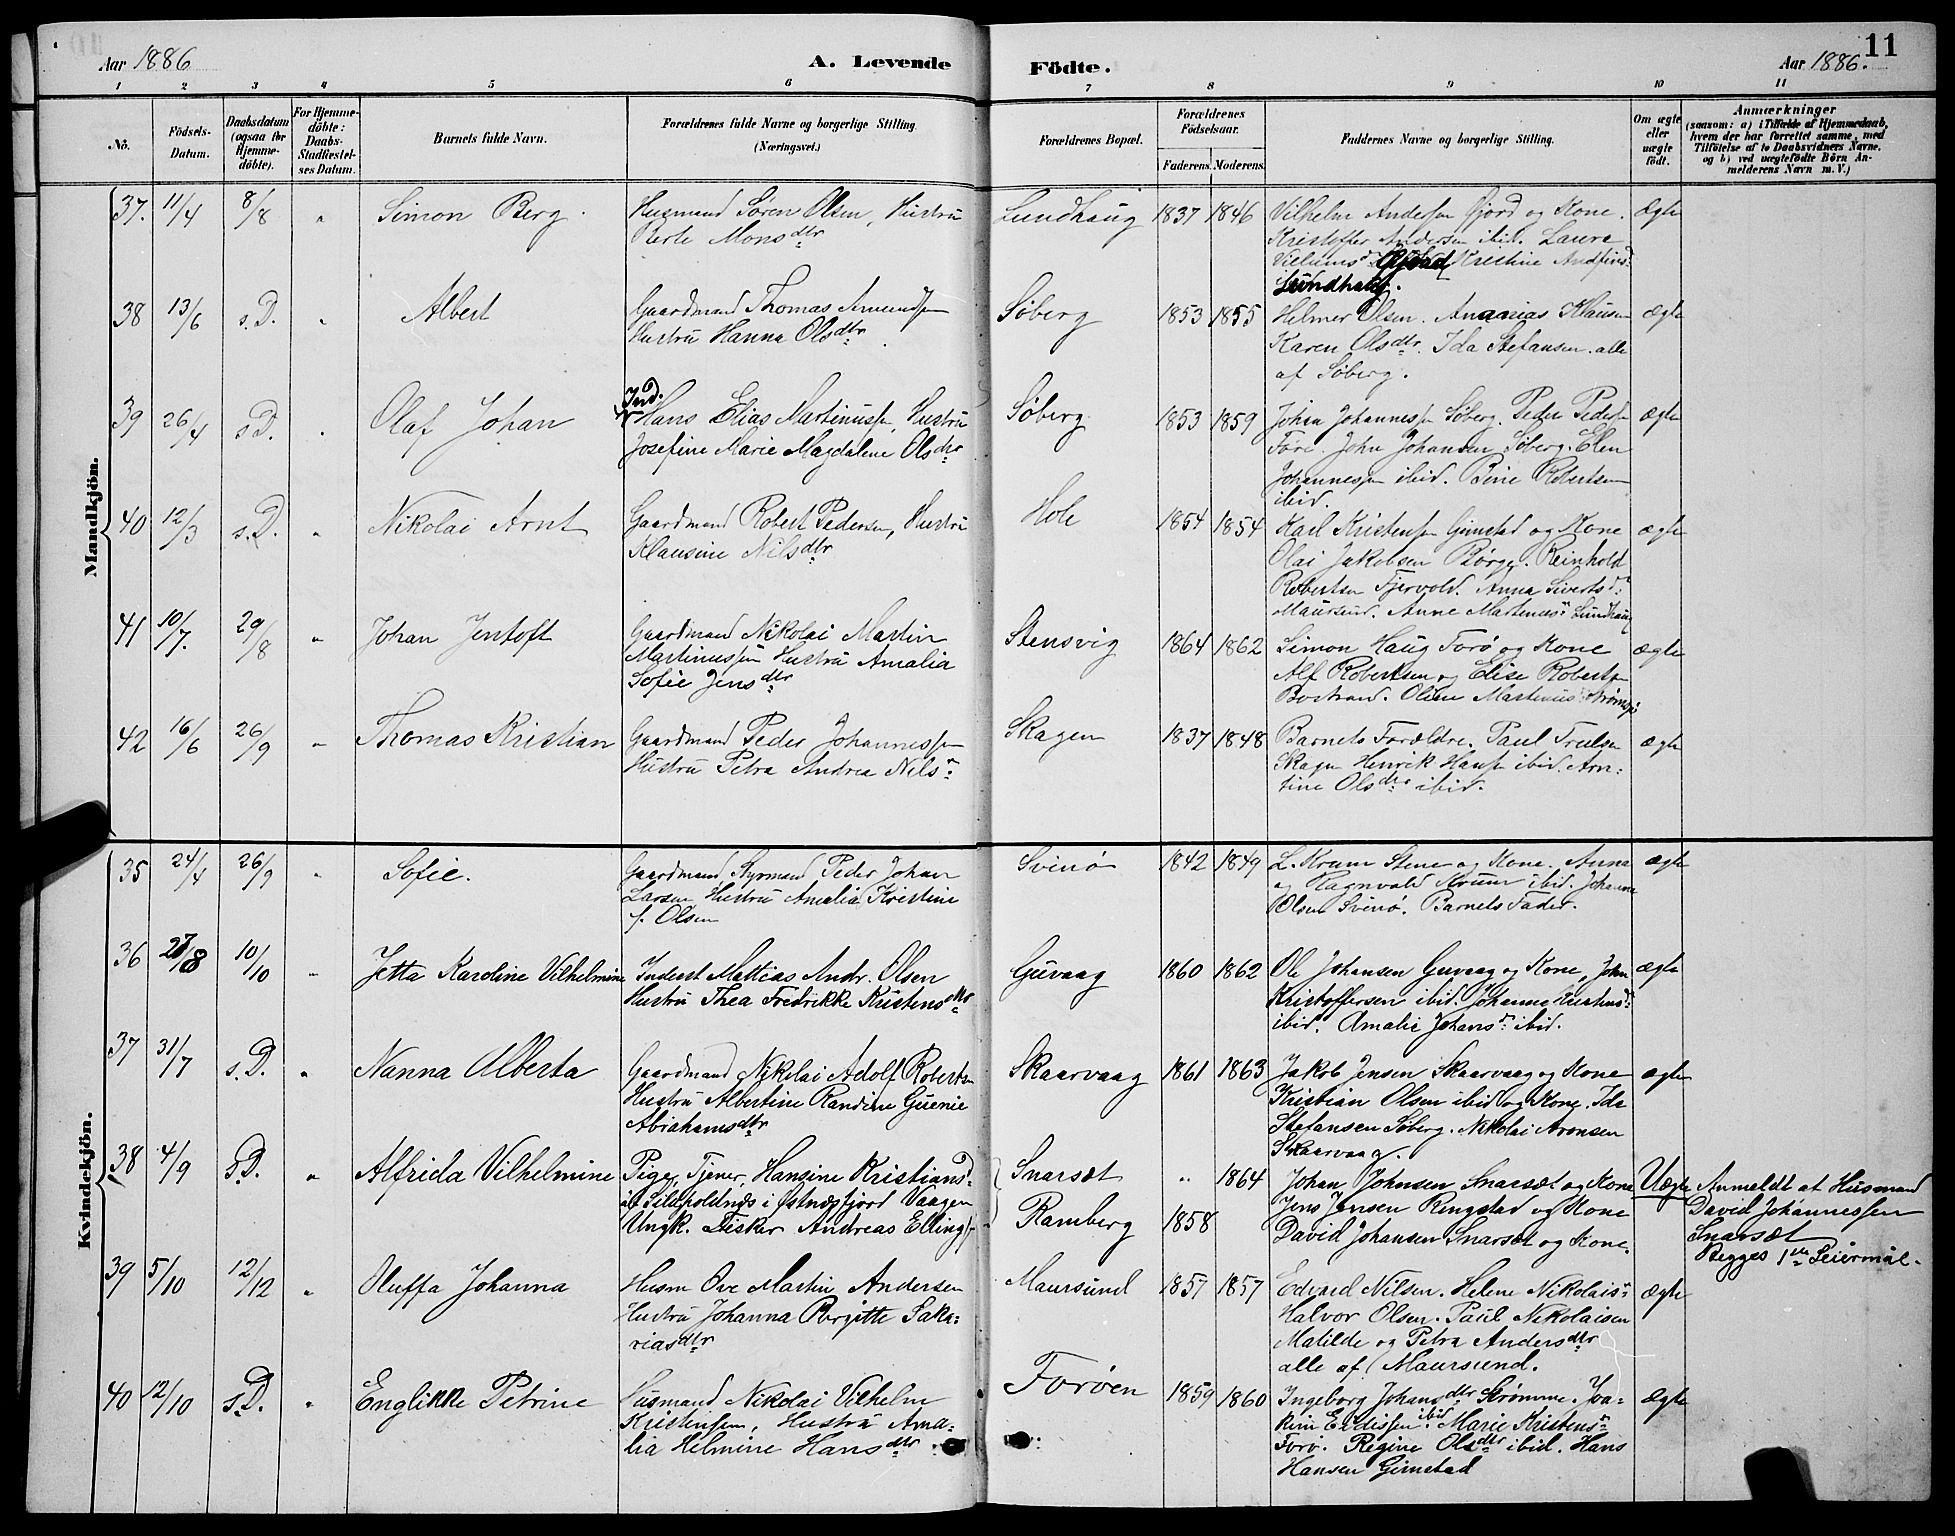 Aar 1886
A. Levende
Födte.
Aar 1886.
11
1 2 3 4 5 6 7 8 9 10 11
No.
Födsels-Datum.
Daabsdatum (ogsaa för Hjemme-döbte).
For Hjemme-döbte: Daabs-Stadfæstel-ses Datum.
Barnets fulde Navn.
Forældrenes fulde Navne og borgerlige Stilling. (Næringsvei.)
Forældrenes Bopæl.
Forældrenes Födselsaar.
Faderens. Moderens.
Faddernes Navne og borgerlige Stilling.
Om ægte eller uægte födt.
Anmærkninger
(saasom: a) i Tilfælde af Hjemmedaab,
hvem der har forrettet samme, med
Tilföielse af to Daabsvidners Navne,
og b) ved uægtefödte Börn An-
melderens Navn m. V.)
Mandkjön.
37. 11/4 8/8 " Simon Berg.
Husmand Sören Olsen, Hustru
Berte Monsdtr
Lundhaug 1837 1846
Vilhelm Andersen Fjord og Kone.
Kristoffer Andersen ibid. Laura
Kristine
Lundhaug.
Ægte
38 13/6 s.D. " Albert
Gaardmand Thomas Amundsen
Hustru Hanna Olsdtr.
Söberg 1853 1855
Helmer Olsen. Ananias Klausen
Karen Olsdtr. Ida Stefansen. alle
af Söberg.
ægte
39 26/4 s.D. " Olaf Johan
Ind.
Hans Elias Martinussen, Hustru
Josefine Marie Magdalene Olsdtr
Söberg 1853 1859
Johan Johannessen Söberg. Peder Pedersen
Före. John Johansen Söberg. Elen
Johannessen ibid. Bine Robertsen
ibid.
ægte
40 12/3 s.D. " Nikolai Arnt
Gaardmand Robert Pedersen, Hustru
Klausine Nilsdtr
Hole 1854 1854
Karl Kristensen Gimstad og Kone
Olai Jakobsen Börge. Reinhold
Robertsen Fjervold. Anna Sivertsd:
Maursund. Anne Martinus: Lundhaug
ægte
41 10/7. 29/8 " Johan Jentoft
Gaardmand Nikolai Martin
Martinussen Hustru Amalia
Sofie Jensdtr
Stensvig 1864 1862
Simon Haug Forö og Kone
Alf Robertsen og Elise Roberts
Oline Martinus:
ægte
42 16/6 26/9 " Thomas Kristian
Gaardmand Peder Johannessen
Hustru Petra Andrea Nils:
Skagen 1837 1848
Barnets Forældre. Paul Trulsen
Skagen Henrik Hansen ibid. Arn:
tine Olsdtr ibid.
ægte
Kvindekjön.
35 24/4 26/9 " Sofie.
Gaardmand Styrmand Peder Johan
Larsen Hustru Amalia Kristine
f. Olsen
Svinö 1842 1849
L. Krum Stene og Kone. Anna
og Ragnvald Krum ibid. Johanna
Olsen Svinö. Barnets Fader.
ægte
36 27/8 10/10 " Jetta Karoline Vilhelmine
Inderst Mattias Andr. Olsen
Hustru Thea Fredrikke Kristensdtr
Guvaag 1860 1862
Ole Johansen Guvaag og Kone, John
Kristoffersen ibid. Johanne Kristensd:
ibid. Amalie Johansd: ibid.
ægte
37 31/7 s.D. " Nanna Alberta
Gaardmand Nikolai Adolf Robertsen
Hustru Albertine Randine Guenie
Abrahamsdtr
Skaarvaag 1861 1863
Jakob Jensen Skaarvaag og Kone
Kristian Olsen ibid og Kone. Ida
Stefansen Söberg. Nikolai Aronsen
Skaarvaag.
ægte
38 4/9 s.D. " Alfrida Vilhelmine
Pige, Tjener, Hansine Kristiansd:
i Östnæsfjord Vaagen
Ungk. Fisker Andreas Ellings
Snarsæt " 1864
Ramberg 1858
Johan Johnsen Snarsæt og Kone
Jens Jensen Ringstad og Kone
David Johansen Snarsæt og Kone.
Uægte
Anmeldt at Husmand
David Johannessen
Snarsæt
Begges 1ste Leiermaal.
39 5/10 12/12 " Oluffa Johanna
Husm Ove Martin Andersen
Hustru Johanna Birgitte Saka:
riasdtr
Maursund 1857 1857
Edvard Nilsen. Helene Nikolais:
Halvor Olsen. Paul Nikolaisen
Matilde og Petra Andersdtr
alle af Maursund.
ægte
40 12/10 s.D. " Englikke Petrine
Husmand Nikolai Vilhelm
Kristensen, Hustru Ama:
lia Helmine Hansdtr
Foröen 1859 1860
Ingeborg Johansdtr Strömme. Joa:
kim ibid Marie Kristens:
Forö. Regine Olsdtr ibid. Hans
Hansen Gimstad
Ægte